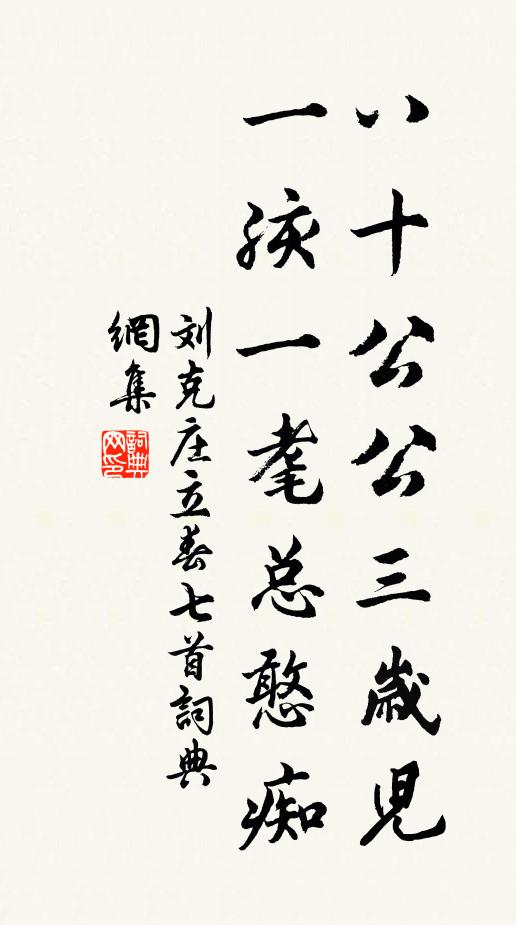 八十公公三歳児
一孩一耄总憨痴
刘克庄立春七首詞典
網集
詞典网印